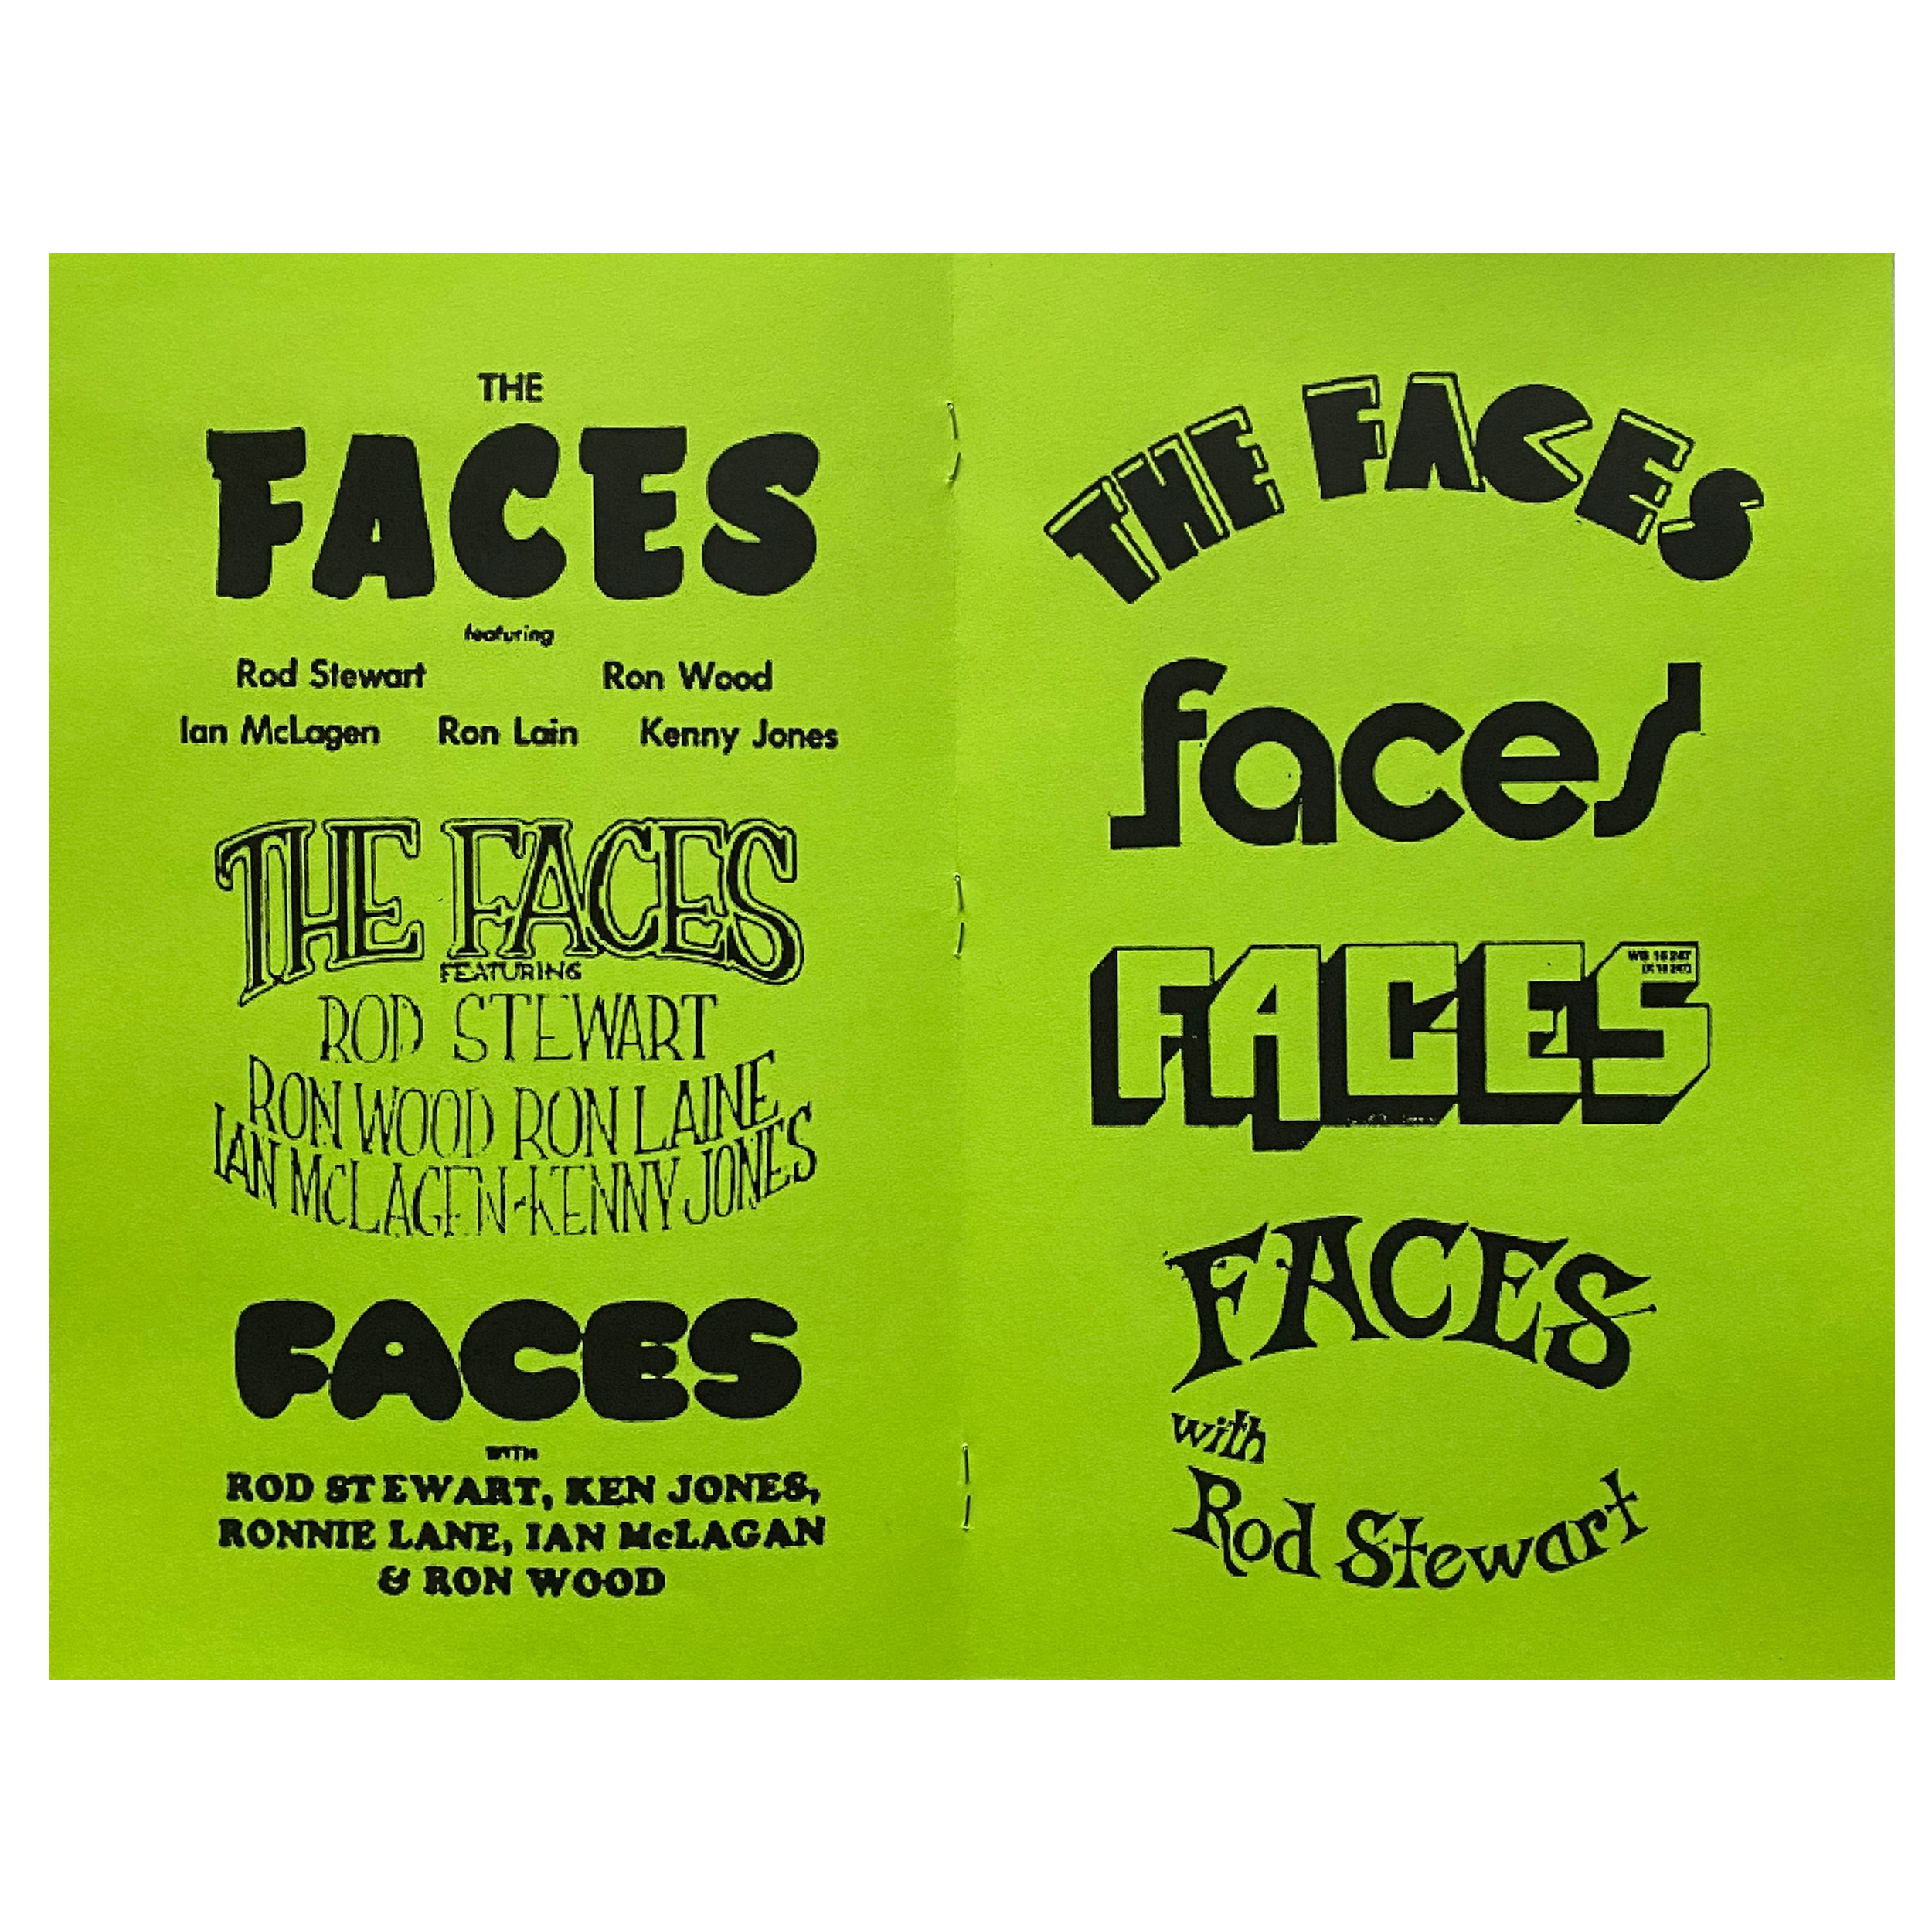 THE
FACES
featuring
Rod Stewart Ron Wood
Ian McLagen Ron Lain Kenny Jones
THE FACES
FEATURING
ROD STEWART
RON WOOD RON LAINE
IAN MCLAGEN-KENNY JONES
FACES
WITH
ROD STEWART, KEN JONES,
RONNIE LANE, IAN McLAGAN
& RON WOOD
THE FACES
faces
FACES
WS 16 247
(K 16 247)
FACES
with
Rod Stewart